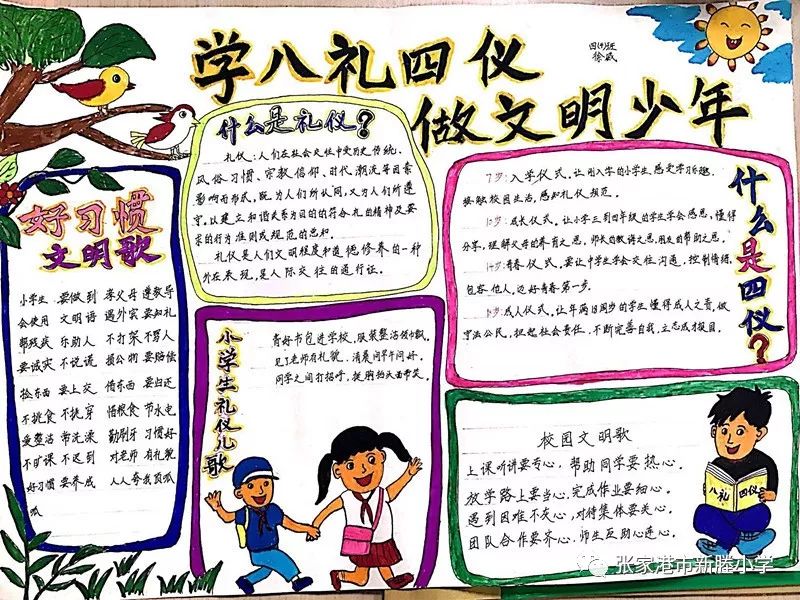 学八礼四仪
做文明少年
四(4)班
徐威
什么是礼仪?
礼仪:人们在社会交往中受历史传统、
风俗习惯、宗教信仰、时代潮流等因素
影响而形成,既为人们所认同,又为人们所遵
守,以建立和谐关系为目的的符合礼的精神及要
求的行为准则或规范的总和。
礼仪是人们文明程度和道德修养的一种
外在表现,是人际交往的通行证。
好习惯
文明歌
小学生 要做到 孝父母 遵教导
会使用 文明语 遇外宾 要知礼
帮残疾 乐助人 不打架 不骂人
要诚实 不说谎 损公物 要赔偿
捡东西 要上交 借东西 要归还
不挑食 不挑穿 惜粮食 节水电
爱整洁 常洗澡 勤刷牙 习惯好
不旷课 不迟到 对老师 有礼貌
好习惯 要养成 人人夸我顶呱
呱
小学生礼仪儿歌
背好书包进学校,服装整洁领巾飘。
见了老师有礼貌,清晨问早午问好。
同学之间打招呼,挺胸抬头面带笑。
什么是四仪?
7岁:入学仪式。让刚入学的小学生,感受学习乐趣,
接触校园生活,感知礼仪规范。
10岁:成长仪式。让小学三到四年级的学生学会感恩,懂得
分享,理解父母的养育之恩,师长的教诲之恩,朋友的帮助之恩。
14岁:青春仪式。要让中学生学会交往沟通,控制情绪,
包容他人,迈好青春第一步。
18岁:成人仪式。让年满18周岁的学生懂得成人之责,做
守法公民,担起社会责任,不断完善自我,立志成才报国。
校园文明歌
上课听讲要专心,帮助同学要热心。
放学路上要当心,完成作业要细心。
遇到困难不灰心,对待集体要关心。
团队合作要齐心,师生互助心连心。
八礼四仪
张家港市新塍小学